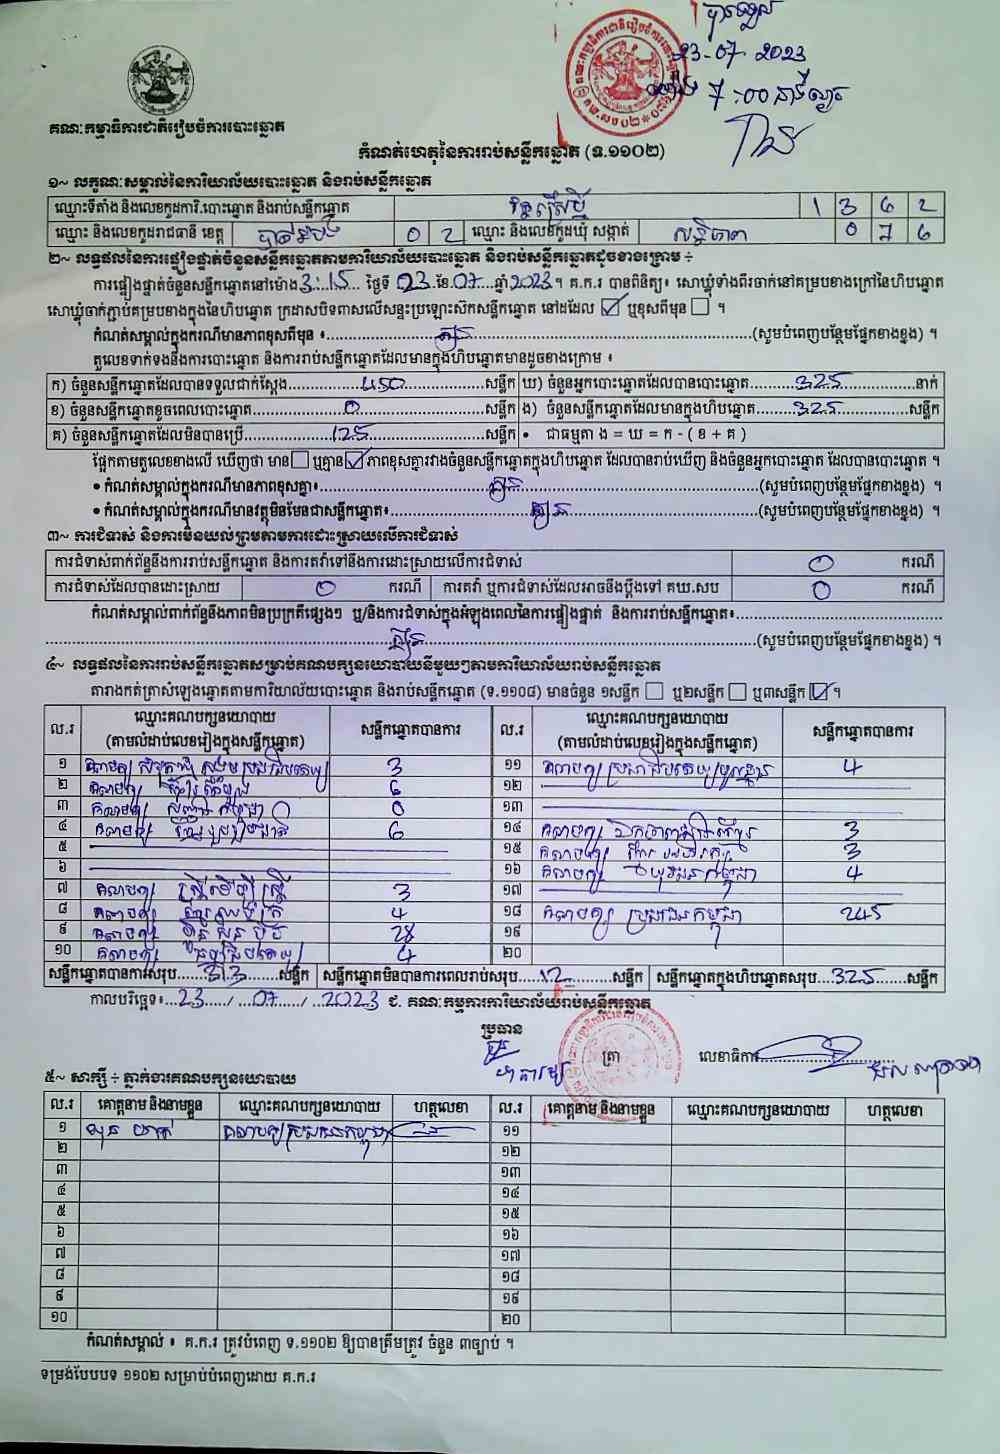 បានទទួល
23-07 2023
ម៉ោង 7:00 នាទីល្ងាច
គណៈកម្មាធិការជាតិរៀបចំការបោះឆ្នោត
កំណត់ហេតុនៃការរាប់សន្លឹកឆ្នោត (ទ.១១០២)
១~ លក្ខណៈសម្គាល់នៃការិយាល័យបោះឆ្នោត និងរាប់សន្លឹកឆ្នោត
ឈ្មោះទីតាំង និងលេខកូដការិ.បោះឆ្នោត និងរាប់សន្លឹកឆ្នោត 1 3 6 2
ឈ្មោះ និងលេខកូដរាជធានី ខេត្ត បាត់ដំបង 0 2 ឈ្មោះ និងលេខកូដឃុំ សង្កាត់ សន្តិភាព 0 7 6
២~ លទ្ធផលនៃការផ្ទៀងផ្ទាត់ចំនួនសន្លឹកឆ្នោតតាមការិយាល័យបោះឆ្នោត និងរាប់សន្លឹកឆ្នោតដូចខាងក្រោម ÷
ការផ្ទៀងផ្ទាត់ចំនួនសន្លឹកឆ្នោតនៅម៉ោង 3:15 ថ្ងៃទី 23 ខែ 07 ឆ្នាំ 2023 ។ គ.ក.រ បានពិនិត្យ៖ សោឃ្លុំទាំងពីរចាក់នៅគម្របខាងក្រៅនៃហិបឆ្នោត
សោឃ្លុំចាក់ភ្ជាប់គម្របខាងក្នុងនៃហិបឆ្នោត ក្រដាសបិទពាសលើសន្ទះប្រឡោះស៊កសន្លឹកឆ្នោត នៅដដែល ☑ ឬខុសពីមុន ☐ ។
កំណត់សម្គាល់ក្នុងករណីមានភាពខុសពីមុន ៖ គ្មាន (សូមបំពេញបន្ថែមផ្នែកខាងខ្នង) ។
តួលេខទាក់ទងនឹងការបោះឆ្នោត និងការរាប់សន្លឹកឆ្នោតដែលមានក្នុងហិបឆ្នោតមានដូចខាងក្រោម ៖
ក) ចំនួនសន្លឹកឆ្នោតដែលបានទទួលជាក់ស្តែង 450 សន្លឹក ឃ) ចំនួនអ្នកបោះឆ្នោតដែលបានបោះឆ្នោត 325 នាក់
ខ) ចំនួនសន្លឹកឆ្នោតខូចពេលបោះឆ្នោត 0 សន្លឹក ង) ចំនួនសន្លឹកឆ្នោតដែលមានក្នុងហិបឆ្នោត 325 សន្លឹក
គ) ចំនួនសន្លឹកឆ្នោតដែលមិនបានប្រើ 125 សន្លឹក • ជាធម្មតា ង = ឃ = ក - ( ខ + គ )
ផ្អែកតាមតួលេខខាងលើ ឃើញថា មាន ☐ ឬគ្មាន ☑ ភាពខុសគ្នារវាងចំនួនសន្លឹកឆ្នោតក្នុងហិបឆ្នោត ដែលបានរាប់ឃើញ និងចំនួនអ្នកបោះឆ្នោត ដែលបានបោះឆ្នោត ។
• កំណត់សម្គាល់ក្នុងករណីមានភាពខុសគ្នា៖ គ្មាន (សូមបំពេញបន្ថែមផ្នែកខាងខ្នង) ។
• កំណត់សម្គាល់ក្នុងករណីមានវត្ថុមិនមែនជាសន្លឹកឆ្នោត៖ គ្មាន (សូមបំពេញបន្ថែមផ្នែកខាងខ្នង) ។
៣~ ការជំទាស់ និងការមិនយល់ព្រមតាមការដោះស្រាយលើការជំទាស់
ការជំទាស់ពាក់ព័ន្ធនឹងការរាប់សន្លឹកឆ្នោត និងការតវ៉ាទៅនឹងការដោះស្រាយលើការជំទាស់ 0 ករណី
ការជំទាស់ដែលបានដោះស្រាយ 0 ករណី ការតវ៉ា ឬការជំទាស់ដែលអាចនឹងប្តឹងទៅ គឃ.សប 0 ករណី
កំណត់សម្គាល់ពាក់ព័ន្ធនឹងភាពមិនប្រក្រតីផ្សេងៗ ឬ/និងការជំទាស់ក្នុងអំឡុងពេលនៃការផ្ទៀងផ្ទាត់ និងការរាប់សន្លឹកឆ្នោត៖
គ្មាន (សូមបំពេញបន្ថែមផ្នែកខាងខ្នង) ។
៤~ លទ្ធផលនៃការរាប់សន្លឹកឆ្នោតសម្រាប់គណបក្សនយោបាយនីមួយៗតាមការិយាល័យរាប់សន្លឹកឆ្នោត
តារាងកត់ត្រាសំឡេងឆ្នោតតាមការិយាល័យបោះឆ្នោត និងរាប់សន្លឹកឆ្នោត (ទ.១១០៨) មានចំនួន ១សន្លឹក ☐ ឬ២សន្លឹក ☐ ឬ៣សន្លឹក ☑ ។
ល.រ ឈ្មោះគណបក្សនយោបាយ (តាមលំដាប់លេខរៀងក្នុងសន្លឹកឆ្នោត) សន្លឹកឆ្នោតបានការ ល.រ ឈ្មោះគណបក្សនយោបាយ (តាមលំដាប់លេខរៀងក្នុងសន្លឹកឆ្នោត) សន្លឹកឆ្នោតបានការ
១ គណបក្ស 3 ១១ គណបក្ស ប្រជាធិបតេយ្យមូលដ្ឋាន 4
២ គណបក្ស 6 ១២
៣ គណបក្ស កម្ពុជា 0 ១៣
៤ គណបក្ស ខ្មែររួបរួមជាតិ 6 ១៤ គណបក្ស 3
៥ ១៥ គណបក្ស 3
៦ ១៦ គណបក្ស យុវជនកម្ពុជា 4
៧ គណបក្ស ស្ត្រីដើម្បីស្ត្រី 3 ១៧
៨ គណបក្ស 4 ១៨ គណបក្ស ប្រជាជនកម្ពុជា 245
៩ គណបក្ស ហ៊្វុនស៊ិនប៉ិច 28 ១៩
១០ គណបក្ស 4 ២០
សន្លឹកឆ្នោតបានការសរុប 313 សន្លឹក សន្លឹកឆ្នោតមិនបានការពេលរាប់សរុប 12 សន្លឹក សន្លឹកឆ្នោតក្នុងហិបឆ្នោតសរុប 325 សន្លឹក
កាលបរិច្ឆេទ៖ 23 / 07 / 2023 ជ. គណៈកម្មការការិយាល័យរាប់សន្លឹកឆ្នោត
ប្រធាន ត្រា លេខាធិការ
៥~ សាក្សី ÷ ភ្នាក់ងារគណបក្សនយោបាយ
ល.រ គោត្តនាម និងនាមខ្លួន ឈ្មោះគណបក្សនយោបាយ ហត្ថលេខា ល.រ គោត្តនាម និងនាមខ្លួន ឈ្មោះគណបក្សនយោបាយ ហត្ថលេខា
១ គណបក្សប្រជាជនកម្ពុជា ១១
២ ១២
៣ ១៣
៤ ១៤
៥ ១៥
៦ ១៦
៧ ១៧
៨ ១៨
៩ ១៩
១០ ២០
កំណត់សម្គាល់ ៖ គ.ក.រ ត្រូវបំពេញ ទ.១១០២ ឱ្យបានត្រឹមត្រូវ ចំនួន ៣ច្បាប់ ។
ទម្រង់បែបបទ ១១០២ សម្រាប់បំពេញដោយ គ.ក.រ